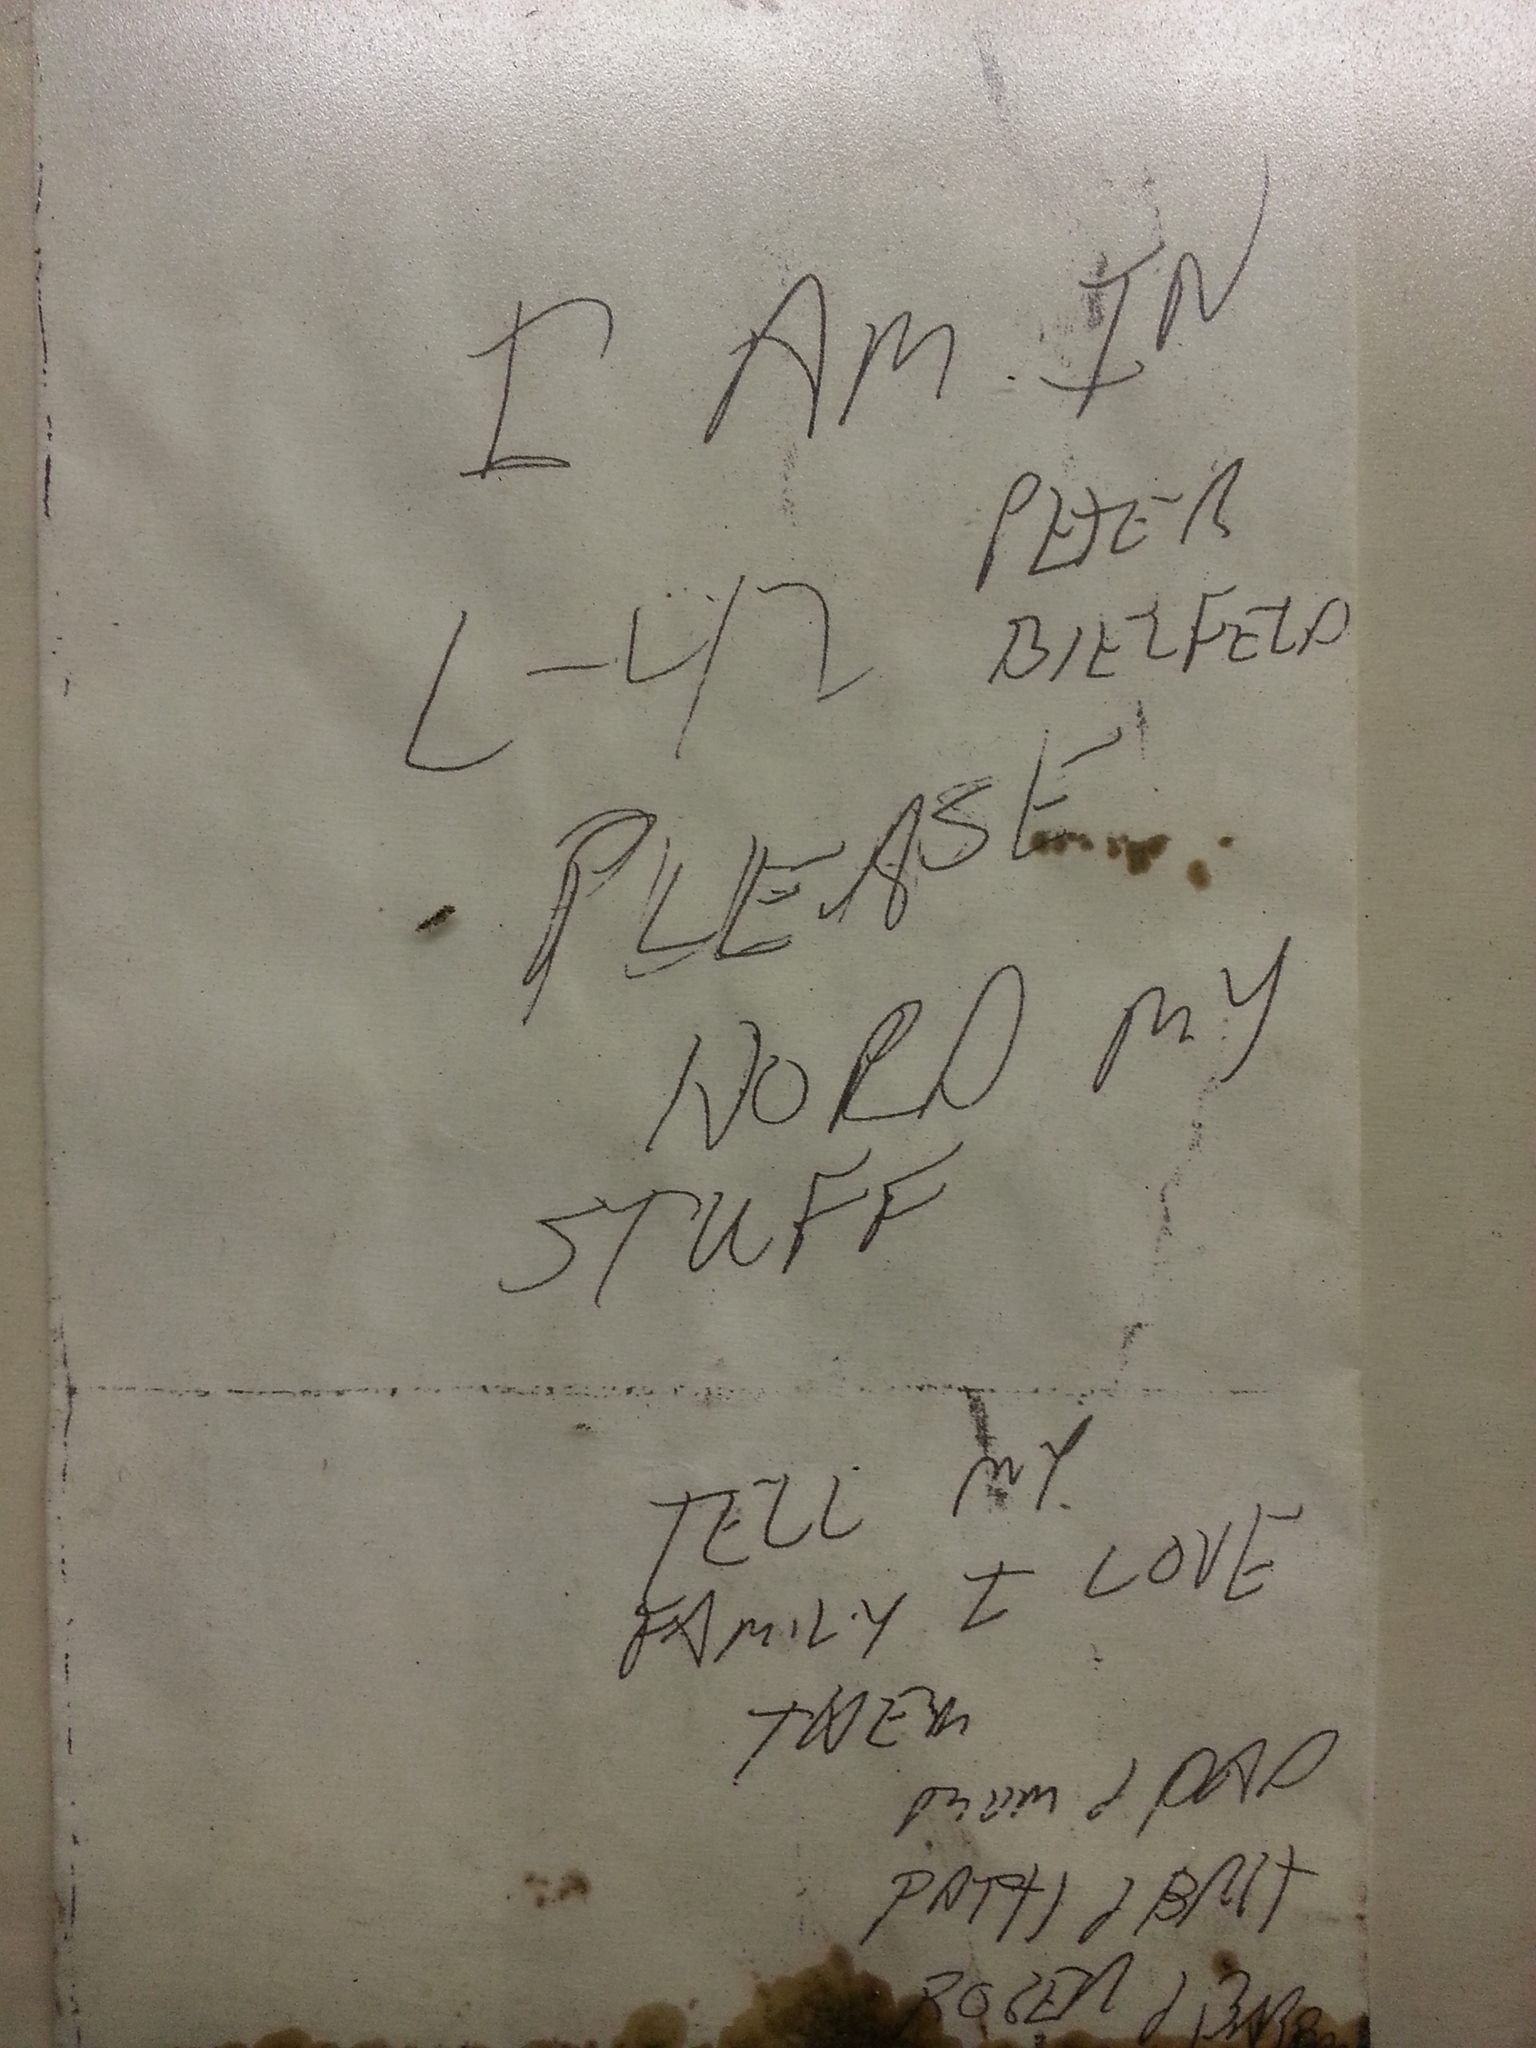 I AM IN
L-42 PETER
BIELFELD
PLEASE
HOLD MY
STUFF
TELL MY
FAMILY I LOVE
THEM
MOM & DAD
PATTY & BRIT
ROGER &